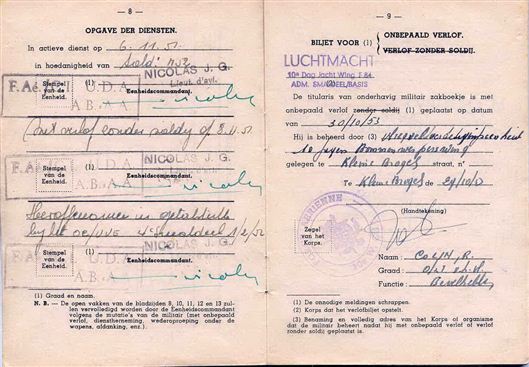 — 8 —
OPGAVE DER DIENSTEN.
In actieve dienst op 6.11.51
in hoedanigheid van Sold. M52
NICOLAS J. G.
Lieut. d'avi.
F.Aé.
U.D.A
A.B.A.A
Stempel van de Eenheid.
(1)
Eenheidscommandant.
Nicolas
Met verlof zonder soldij op 8.11.51
NICOLAS J. G.
U.D.A
A.B.A.A
Stempel van de Eenheid.
(1)
Eenheidscommandant.
Nicolas
1/2/52
NICOLAS J. G.
U.D.A
A.B.A.A
Stempel van de Eenheid.
(1)
Eenheidscommandant.
Nicolas
(1) Graad en naam.
N. B. — De open vakken van de bladzijden 8, 10, 11, 12 en 13 zul-
len vervolledigd worden door de Eenheidscommandant
volgens de mutatie's van de militair (met onbepaald
verlof, dienstherneming, wederoproeping onder de
wapens, afdanking, enz.).
— 9 —
BILJET VOOR (1) { ONBEPAALD VERLOF.
VERLOF ZONDER SOLDIJ.
LUCHTMACHT
10e Dag Jacht Wing F 84
ADM. SMALDEEL/BASIS
De titularis van onderhavig militair zakboekje is met
onbepaald verlof zonder soldij (1) geplaatst op datum
van 30/10/53
Hij is beheerd door (3)
te
gelegen te Kleine Brogel straat, n°
Te Kleine Brogel de 29/10/
(Handtekening)
Zegel van het Korps.
Naam : COLIN, R.
Graad :
Functie :
(1) De onnodige meldingen schrappen.
(2) Korps dat het verlofbiljet opstelt.
(3) Benaming en volledig adres van het Korps of organisme
dat de militair beheert nadat hij met onbepaald verlof of verlof
zonder soldij geplaatst is.